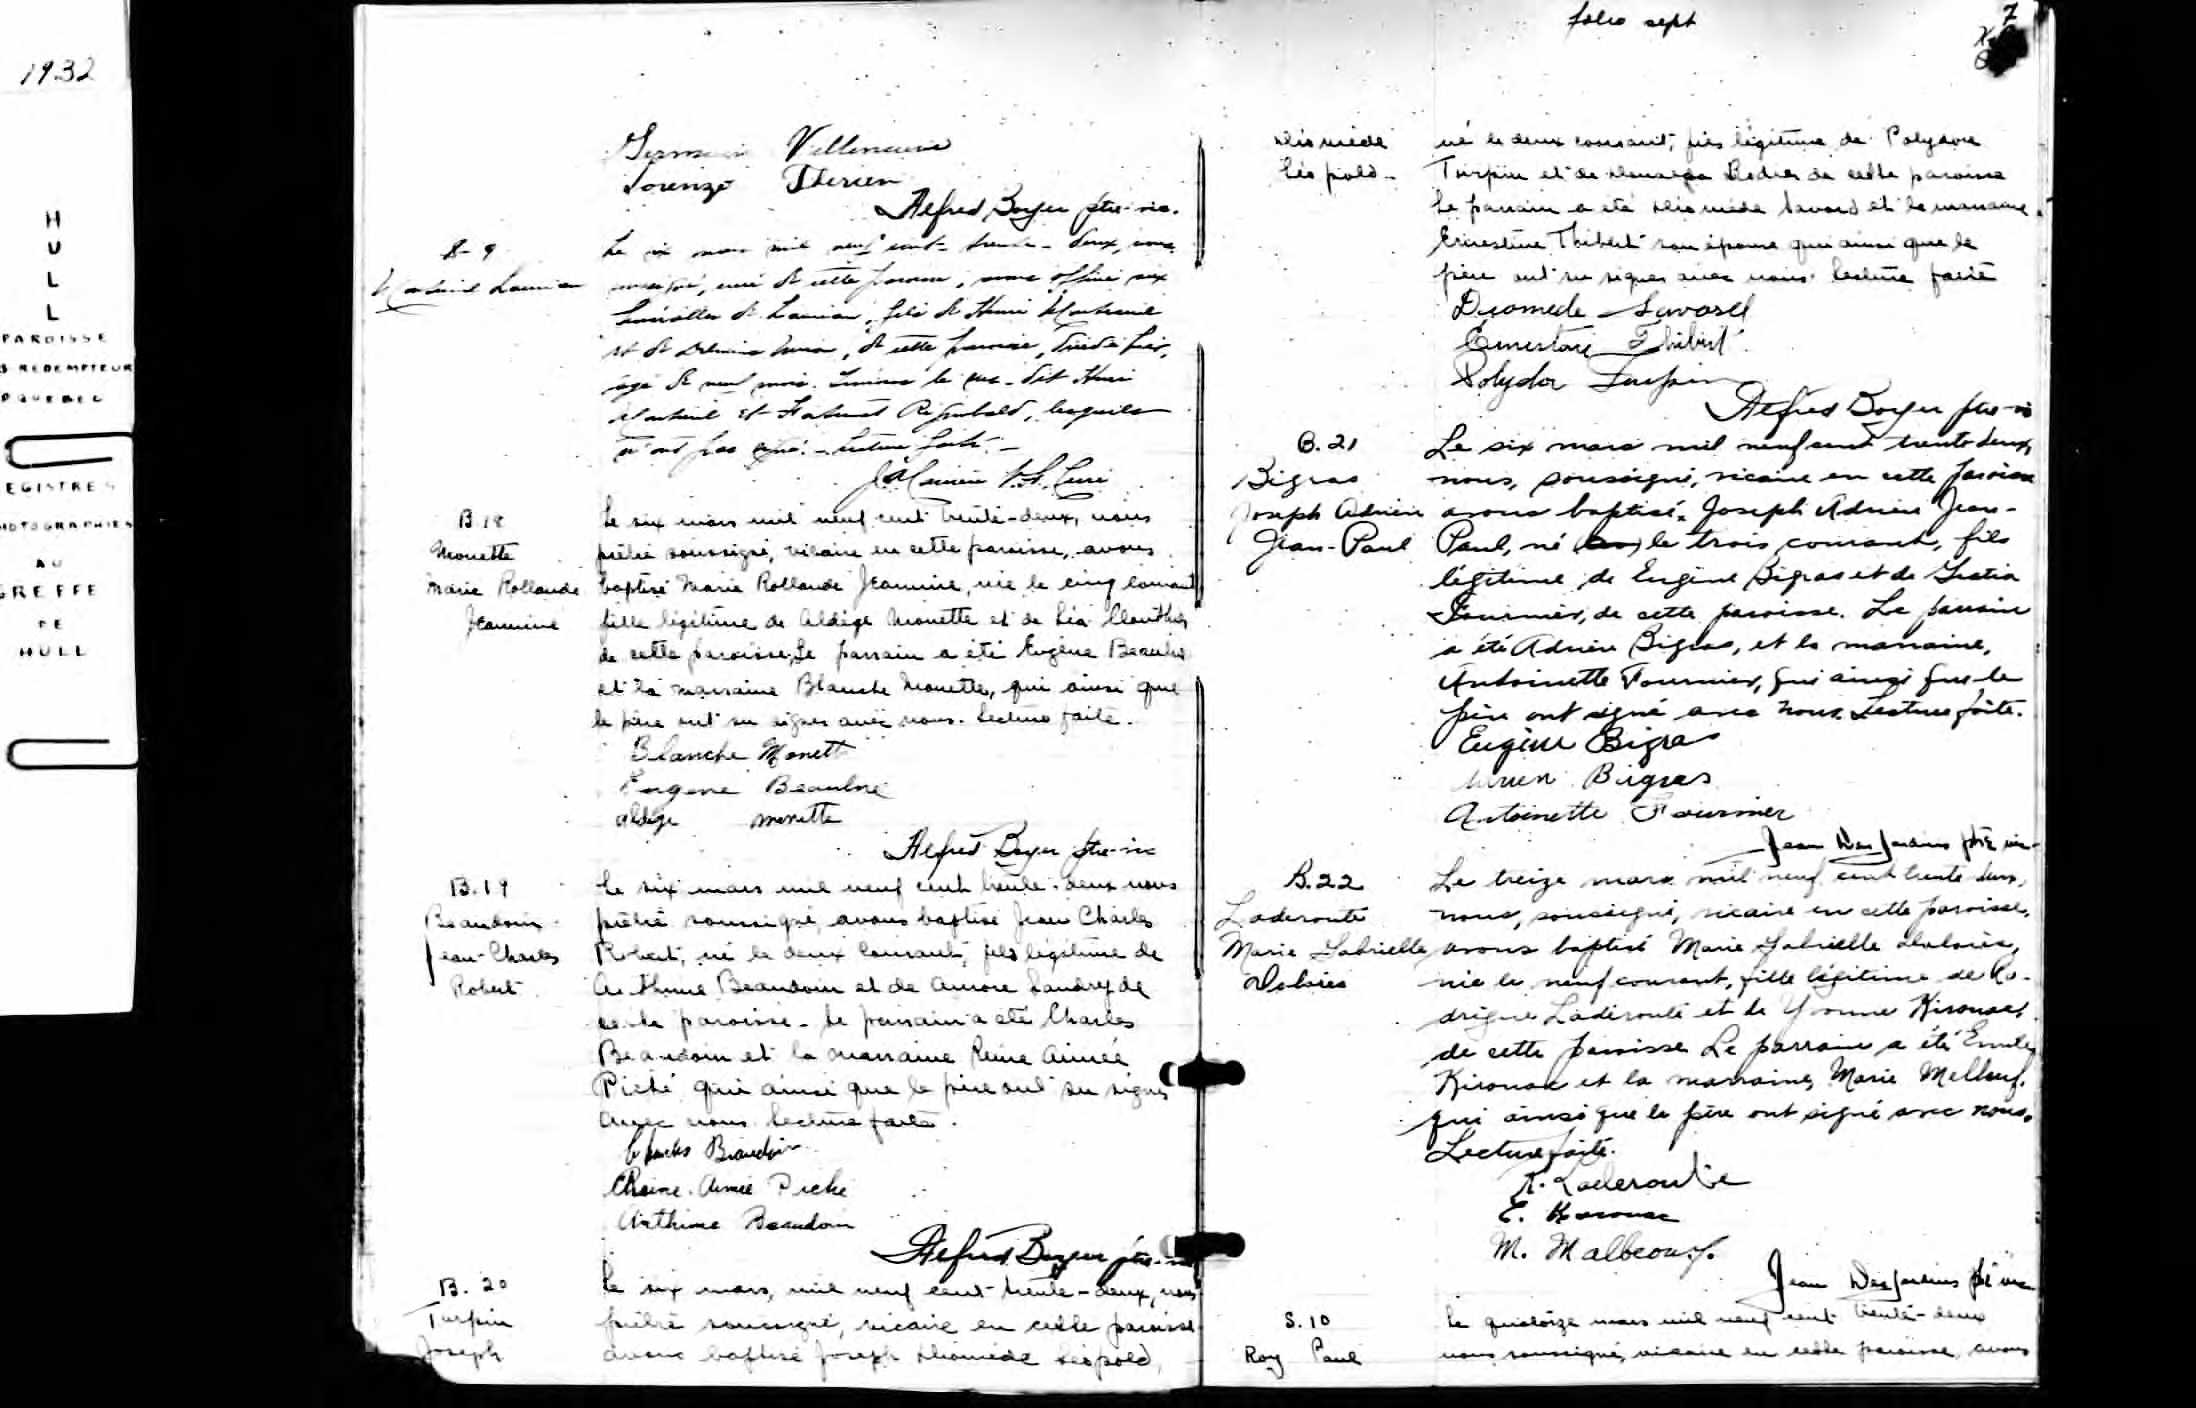 1932
H
U
L
L
PAROISSE
REDEMPTEUR
QUEBEC
REGISTRES
PHOTOGRAPHIES
AU
GREFFE
DE
HULL
Villeneuve
Lorenzo Therien
Alfred Boyer ptre-vic.
S-9
Le six mars mil neuf cent trente-deux, nous
soussigné, curé de cette paroisse, avons
de Lucien, fils de Henri
et de de cette paroisse,
âgé de neuf mois. le sus-dit Henri
et lesquels
n'ont pas signé. Lecture faite.
Curé
B.18
Monette
Marie Rollande
Jeannine
Le six mars mil neuf cent trente-deux, nous
prêtre soussigné, vicaire en cette paroisse, avons
baptisé Marie Rollande Jeannine, née le cinq courant
fille légitime de Aldège Monette et de Léa Clouthier
de cette paroisse. Le parrain a été Eugène Beaulne
et la marraine Blanche Monette, qui ainsi que
le père ont su signer avec nous. Lecture faite.
Blanche Monett
Eugene Beaulne
Aldège Monette
Alfred Boyer ptre-vic
B.19
Beaudoin
Jean-Charles
Robert
Le six mars mil neuf cent trente-deux nous
prêtre soussigné, avons baptisé Jean Charles
Robert, né le deux courant, fils légitime de
Arthime Beaudoin et de Aurore Landry de
cette paroisse - Le parrain a été Charles
Beaudoin et la marraine Reine Aimée
Piché qui ainsi que le père ont su signer
avec nous. Lecture faite.
Charles Beaudoin
Reine-Aimée Piché
Arthime Beaudoin
Alfred Boyer ptre-vic
B.20
Turpin
Joseph
Le six mars, mil neuf cent trente-deux, nous
prêtre soussigné, vicaire en cette paroisse
avons baptisé Joseph Diomède Léopold,
folio sept
7
Diomède
Léopold-
né le deux courant, fils légitime de Polydore
Turpin et de de cette paroisse
Le parrain a été Diomède Savard et la marraine
Ernestine Thibert son épouse qui ainsi que le
père ont su signer avec nous. Lecture faite
Diomede Savard
Thibert
Polydor Turpin
Alfred Boyer ptre-vic
B.21
Bigras
Joseph Adrien
Jean-Paul
Le six mars mil neuf cent trente deux,
nous, soussigné, vicaire en cette paroisse
avons baptisé, Joseph Adrien Jean-
Paul, né le trois courant, fils
légitime de Eugène Bigras et de
Fournier, de cette paroisse. Le parrain
a été Adrien Bigras, et la marraine,
Antoinette Fournier, qui ainsi que le
père ont signé avec nous. Lecture faite.
Eugène Bigras
Bigras
Antoinette Fournier
Jean DesJardins ptre vic-
B.22
Laderoute
Marie Gabrielle
Dolorès
Le treize mars mil neuf cent trente deux,
nous, soussigné, vicaire en cette paroisse,
avons baptisé Marie Gabrielle Dolorès,
née le neuf courant, fille légitime de Ro-
drigue Laderoute et de Yvonne Kirouac,
de cette paroisse. Le parrain a été Emile
Kirouac et la marraine, Marie
qui ainsi que le père ont signé avec nous.
Lecture faite.
R. Laderoute
E. Kirouac
M. Malbeouf.
Jean DesJardins ptre vic
S.10
Roy Paul
Le quatorze mars mil neuf cent trente-deux
nous soussigné, vicaire en cette paroisse avons